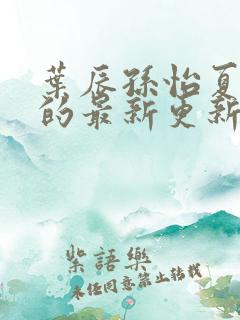 葉辰孫怡夏
的最新更新
紫語樂
未經同意禁止轉載